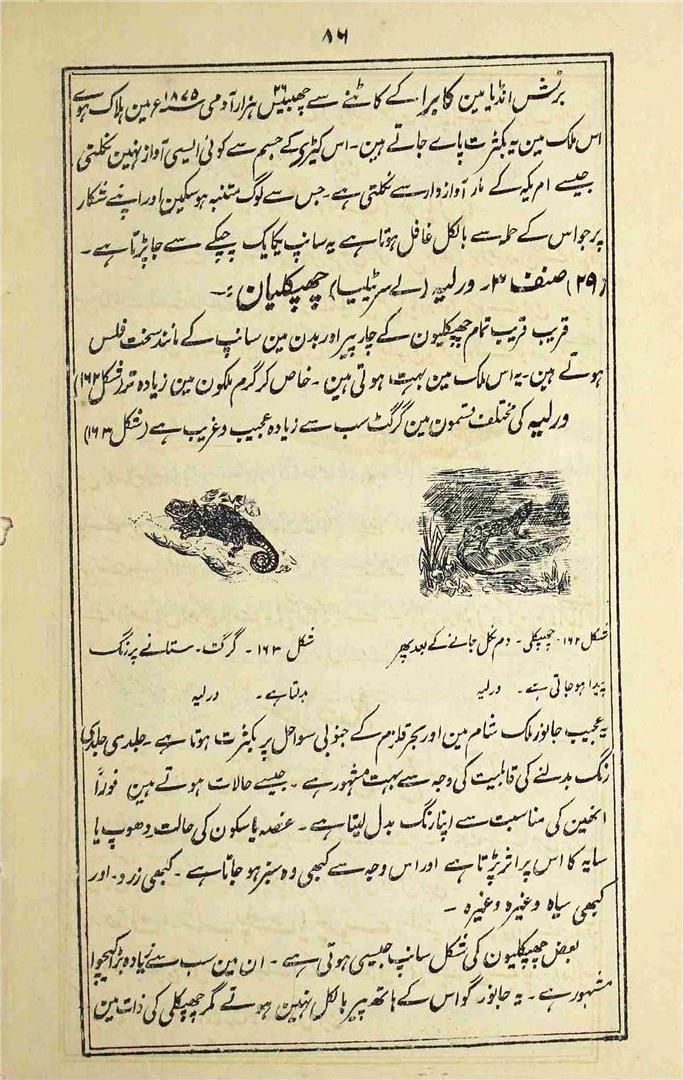 ۸۶
برٹش انڈیا مین کابرا کے کاٹنے سے چھبیس ۲۶ ہزار آدمی ۱۸۷۵ء مین ہلاک ہوے
اس ملک مین یہ بکثرت پاے جاتے ہین۔ اس کیڑی کے جسم سے کوئی ایسی آواز نہین نکلتی
جیسے امریکہ کے مار آواز دار سے نکلتی ہے۔ جس سے لوگ متنبہ ہو سکین اور اپنے شکار
پر جو اس کے حملہ سے بالکل غافل ہوتا ہے یہ سانپ یکایک چپکے سے جا پڑتا ہے۔
(۲۹) صنف ۳۔ ورلیہ (لے سرٹیلیا) چھپکلیان :۔
قریب قریب تمام چھپکلیون کے چار پیر اور بدن مین سانپ کے مانند سخت فلس
ہوتے ہین۔ یہ اس ملک مین بہت ہوتی ہین۔ خاص کر گرم ملکون مین زیادہ تر (شکل ۱۶۲)
ورلیہ کی مختلف قسمون مین گرگٹ سب سے زیادہ عجیب و غریب ہے (شکل ۱۶۳)
شکل ۱۶۲۔ چھپکلی۔ دم نکل جانے کے بعد پھر
پیدا ہو جاتی ہے۔ ورلیہ
شکل ۱۶۳۔ گرگٹ۔ ستانے پر رنگ
بدلتا ہے۔ ورلیہ
یہ عجیب جانور ملک شام مین اور بحر قلزم کے جنوبی سواحل پر بکثرت ہوتا ہے۔ جلدی جلدی
رنگ بدلنے کی قابلیت کی وجہ سے بہت مشہور ہے۔ جیسے حالات ہوتے ہین فوراً
انھین کی مناسبت سے اپنا رنگ بدل لیتا ہے۔ غصہ یا سکون کی حالت دھوپ یا
سایہ کا اس پر اثر پڑتا ہے اور اس وجہ سے کبھی وہ سبز ہو جاتا ہے۔ کبھی زرد۔ اور
کبھی سیاہ وغیرہ وغیرہ۔
بعض چھپکلیون کی شکل سانپ جیسی ہوتی ہے۔ ان مین سب سے زیادہ بڑا کیچوا
مشہور ہے۔ یہ جانور گو اس کے ہاتھ پیر بالکل نہین ہوتے مگر چھپکلی کی ذات مین